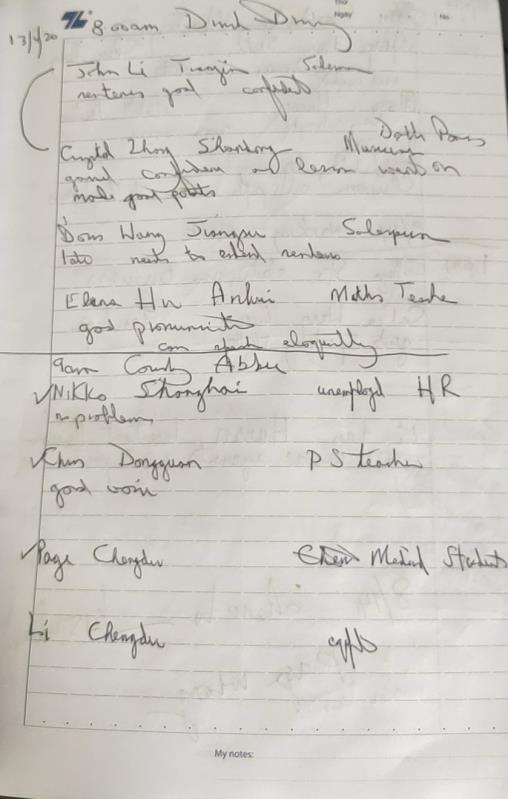 13/4/20 8:00am Drink Driving
Thu
Ngày No.
John Li Tianjin Salesman
sentences good confident
Crystal Zhong Shandong
good confidence lesson went on
made good points
Doris Wang Jiangsu Salesperson
late needs to extend sentences
Elena Hu Anhui Maths Teacher
good pronunciation
can speak eloquently
9am County Abbey
Nikko Shanghai unemployed HR
no problems
Chris Dongguan PS teacher
good voice
Page Chengdu Medical Students
Li Chengdu
My notes: